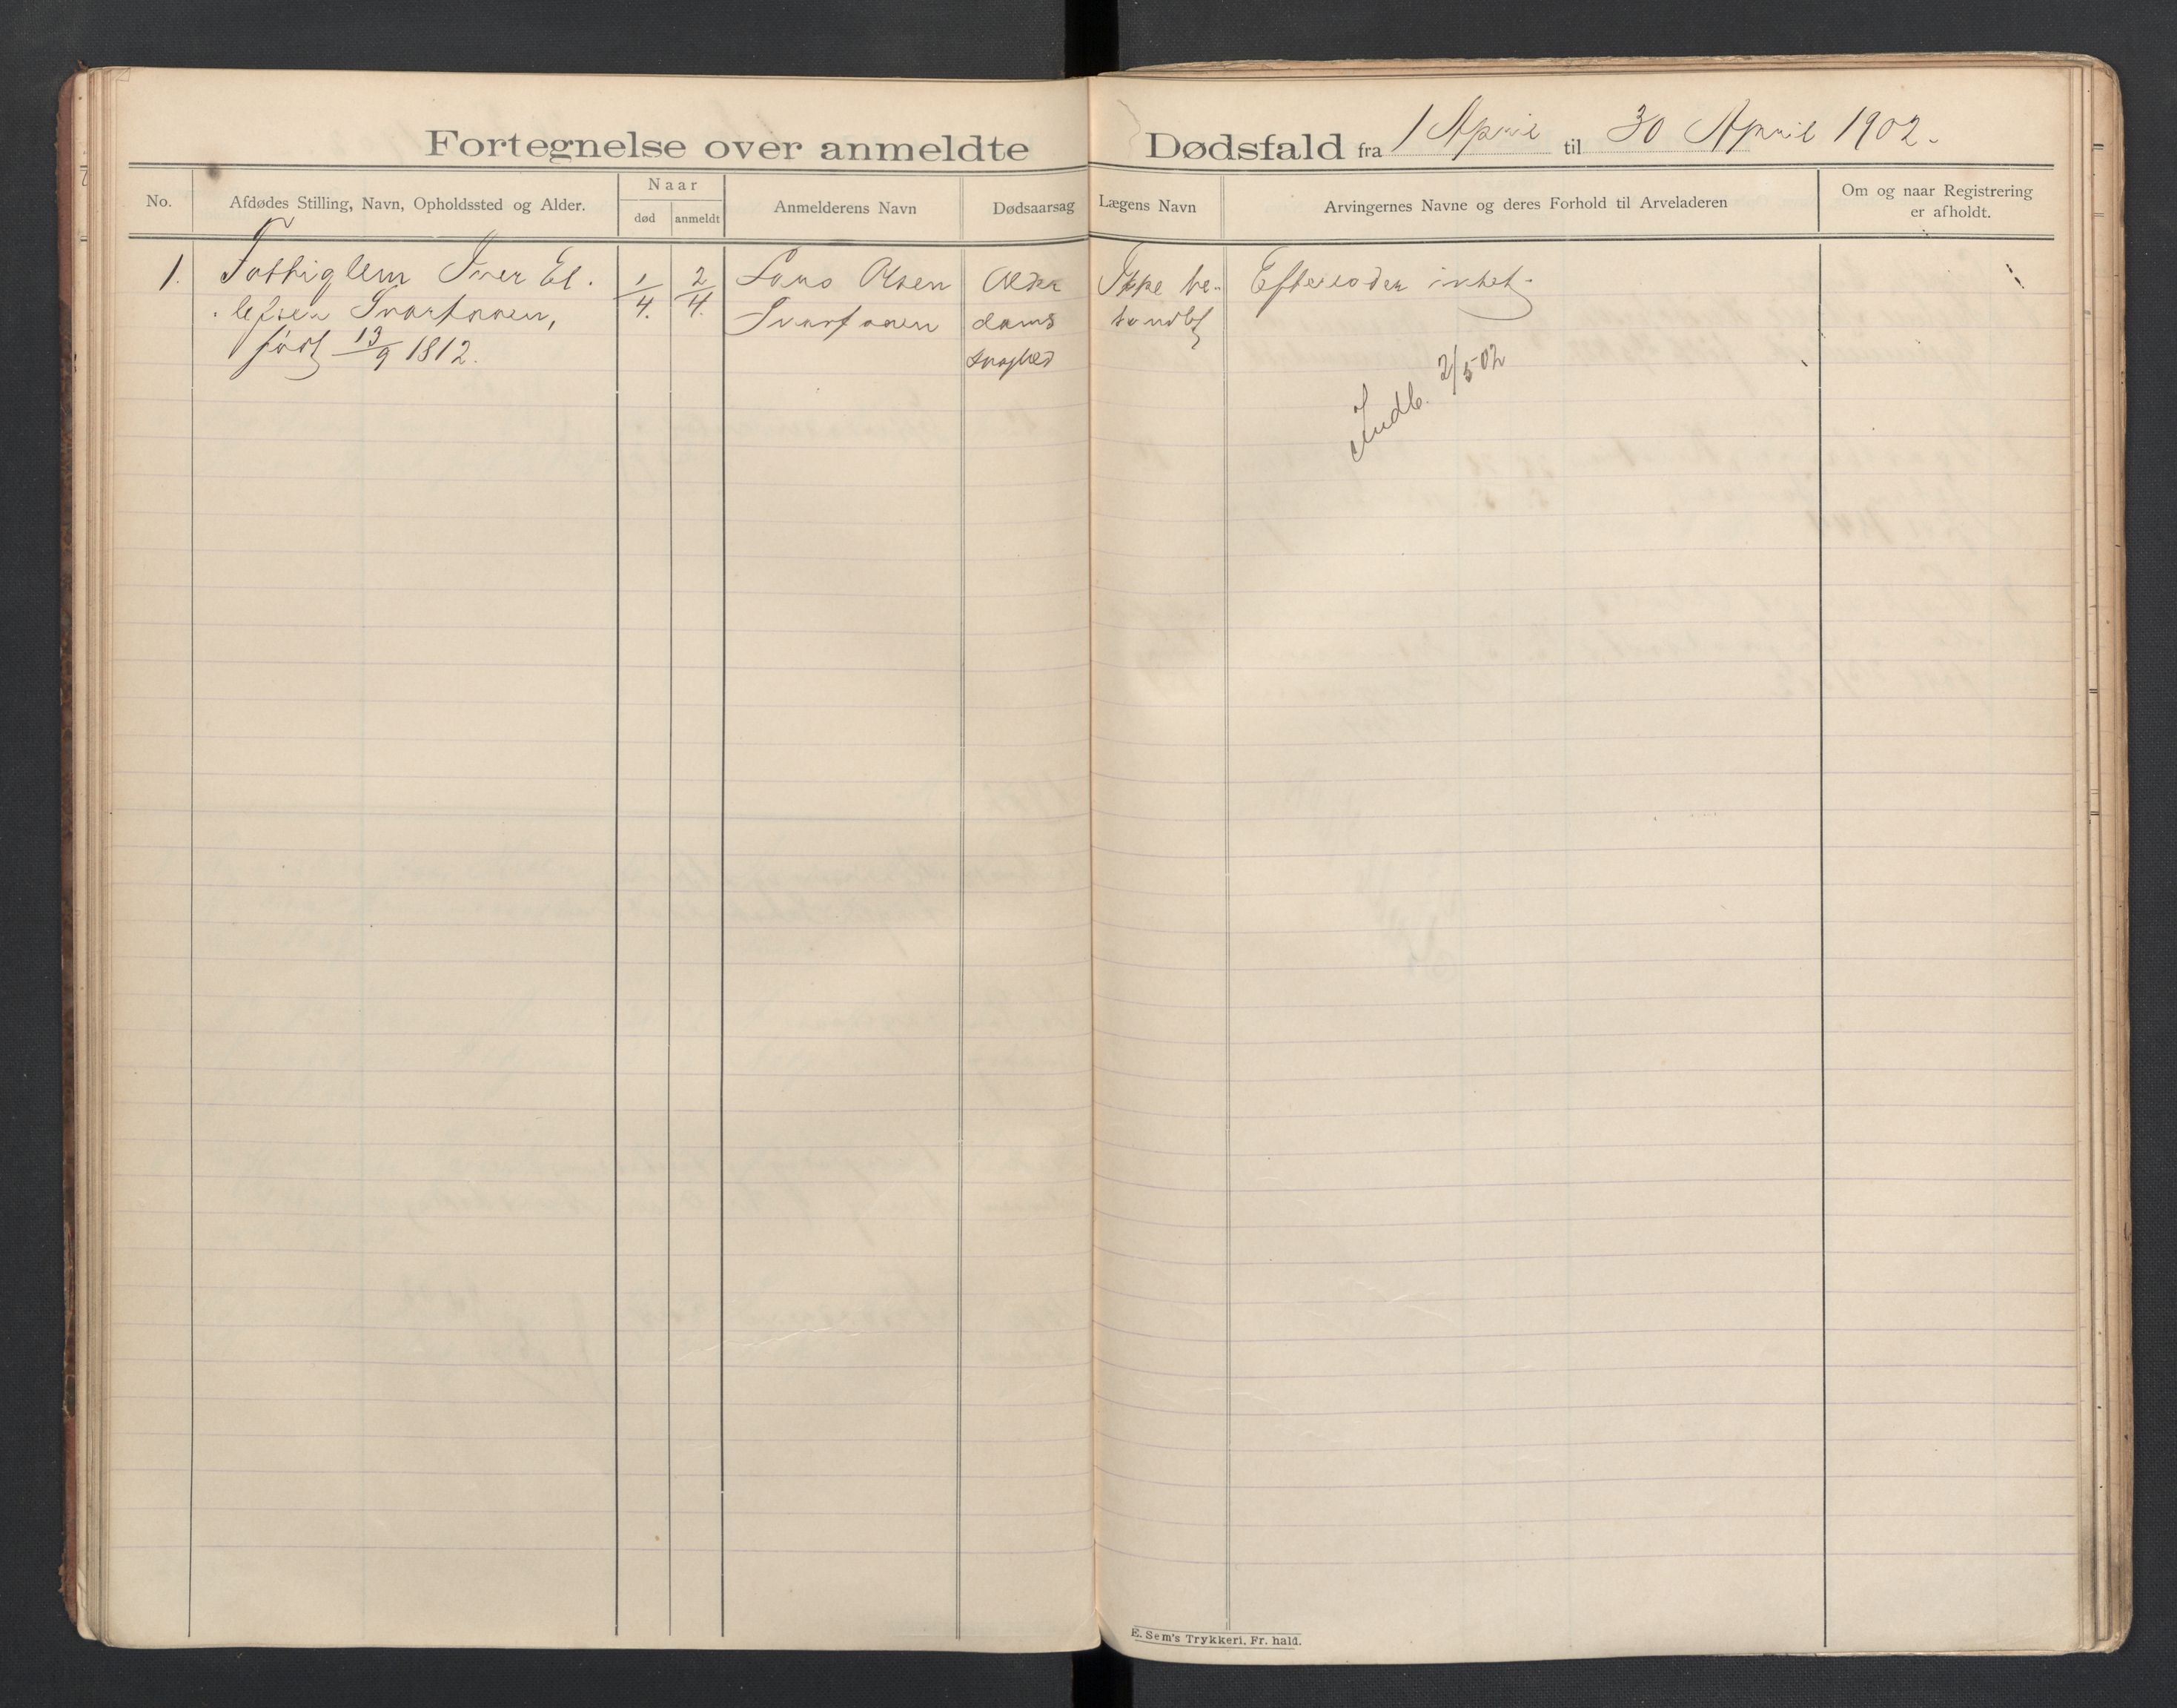 Fortegnelse over anmeldte Dødsfald fra 1 April til 30 April 1902.
No.
Afdødes Stilling, Navn, Opholdssted og Alder.
Naar
død
anmeldt
Anmelderens Navn
Dødsaarsag
Lægens Navn
Arvingernes Navne og deres Forhold til Arveladeren
Om og naar Registrering
er afholdt.
1.
Fattiglem Iver El.
lefsen Svartaaen,
født 13/9 1812.
1/4.
2/4.
Lars Olsen
Svartaaen
Alder
doms
svaghed
Ikke be-
handlet
Efterlader intet.
Indb. 2/5 02
E. Sem's Trykkeri, Fr. hald.